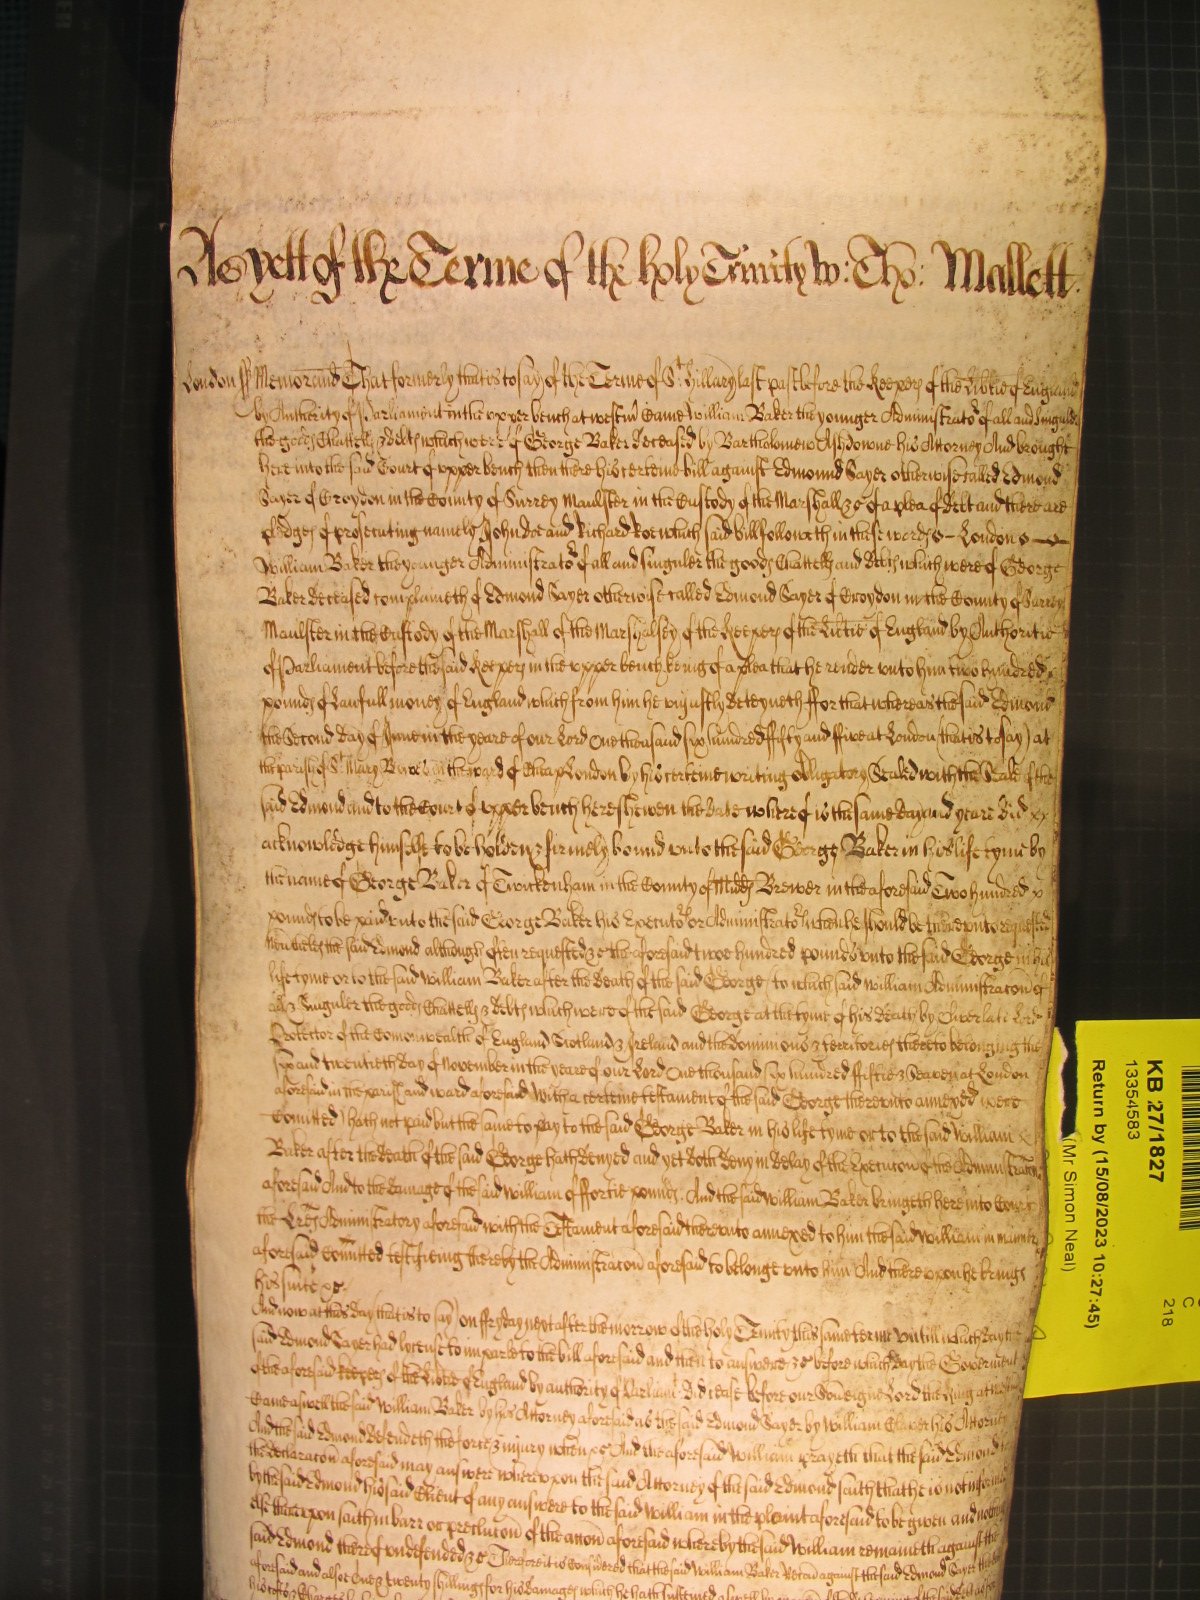 As yett of the Terme of the holy Trinity W: Tho: Mallett.
London ss Memorand That formerly that is to say of the Terme of St Hillary last past before the Keepers of the Libtie of England
by Authority of Parliament in the vpper bench at westm̄ Came William Baker the younger Administrator of all and singuler
the goods Chattells & debts which were of George Baker deceased by Bartholomew Ashdowne his Attorney And brought
here into the said Court of vpper bench then there his certeine bill against Edmound Sayer otherwise called Edmond
Sayer of Croydon in the County of Surrey Maulster in the Custody of the Marshall &c of a plea of debt and there are
pledges of prosecuting namely John doe and Richard Roe which said bill followeth in these words s - London s
William Baker the younger Administrator of all and singuler the goods Chattells and debts which were of George
Baker deceased complaineth of Edmond Sayer otherwise called Edmond Sayer of Croydon in the County of Surrey
Maulster in the Custody of the Marshall of the Marshalsey of the Keepers of the Libtie of England by Authoritie
of Parliament before the said Keepers in the vpper bench being of a plea that he render vnto him two hundred
pounds of lawfull money of England which from him he vniustly deteyneth ffor that whereas the said Edmond
the Second day of June in the yeare of our Lord One thousand six hundred ffifty and ffive at London (that is to say) at
the parish of St Mary Bowe in the ward of Cheap London by his certeine writing obligatory Sealed with the Seale of the
said Edmond and to the Court of vpper bench here shewen the date whereof is the same day and yeare did
acknowledge himselfe to be holden & firmely bound vnto the said George Baker in his life tyme by
the name of George Baker of Twickenham in the County of Midds Brewer in the aforesaid Two hundred
pounds to be paid vnto the said George Baker his Executor or Administrator when he should be therevnto requested
Neuertheles the said Edmond although often requested &c the aforesaid twoe hundred pounds vnto the said George in his
life tyme or to the said William Baker after the death of the said George (to which said William Administracon of
all & singuler the goods Chattells & debts which were of the said George at the tyme of his death by Oliver late Lord
Protector of the Comonwealth of England Scotland & Ireland and the dominions & territories thereto belonging the
six and twentieth day of November in the yeare of our Lord One thousand six hundred ffiftie & Seaven at London
aforesaid in the parish and ward aforesaid With a certeine testament of the said George therevnto annexed were
Comitted) hath not paid but the same to pay to the said George Baker in his life tyme or to the said William
Baker after the death of the said George hath denyed and yet doth deny in delay of the Execucon of the Administracon
aforesaid And to the damage of the said William of ffortie pounds. And the said William Baker bringeth here into Court
the Lres Administratory aforesaid with the Testament aforesaid therevnto annexed to him the said William in manner
aforesaid Comitted testifieing thereby the Administracon aforesaid to belonge vnto him And therevpon he brings
his suite &c.
And now at this day that is to say on ffryday next after the morrow of the holy Trinity this same terme vntill which day the
said Edmond Sayer had lycense to imparle to the bill aforesaid and then to answere &c before which day the Government
of the aforesaid Keepers of the Libtie of England by authority of Parliamt Did cease before our Soueigne Lord the King at
Came aswell the said William Baker by his Attorney aforesaid as the said Edmond Sayer by William his Attorney
And the said Edmond defendeth the force & iniury when &c And the aforesaid William prayeth that the said Edmond to
the declaracon aforesaid may answere wherevpon the said Attorney of the said Edmond saith that he is not informed
by the said Edmond his said Client of any answere to the said William in the plaint aforesaid to be given and nothing
else therevpon saith in barr or preclucon of the accon aforesaid whereby the said William remaineth against the
said Edmond thereof vndefended &c Therefore it is considered that the said William Baker Recou against the said Edmond Sayer
aforesaid and alsoe One & twenty shillings for his damages which he hath susteined aswell by
his costs & Charges

KB 27/1827
13354583
Return by (15/08/2023 10:27:45)
(Mr Simon Neal)
C
218